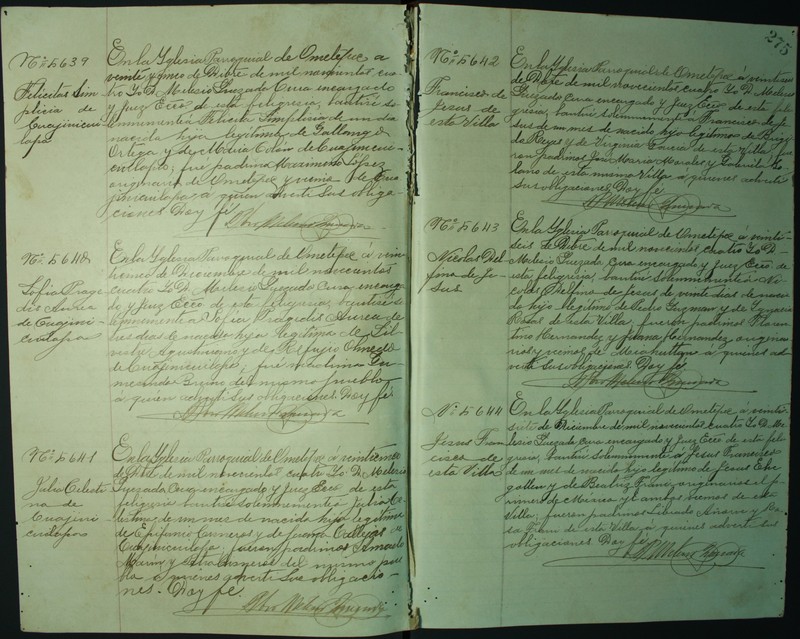 Nº 5639
Felicitas Sim-
plicia de
Cuajinicui-
lapa
En la Yglesia Parroquial de Ometepec a
veinte y cinco de Dbre de mil novecientos cua-
tro Yo D. Melecio Guezada Cura encargado
y Juez Ecco de esta feligresia, bautisé so-
lemnemente á Felicitas Simplicia de un dia
nacida hija legitima de
Ortega y de Maria Colon de Cuajinicui-
cuilapa; fué padrino Maximino López
originario de Ometepec y vecino de Cua-
jinicuilapa a quien advertí sus obliga-
ciones. Doy fé.
Pbro Melecio Guezada
Nº 5640
Sofia Prage-
dis Aurea
de Cuajini-
cuilapa
En la Yglesia Parroquial de Ometepec á vein-
ticinco de Diciembre de mil novecientos
cuatro Yo D. Melecio Guezada Cura, encarga-
do y Juez Ecco de esta feligresia, bautisé so-
lemnemente á Sofia Pragedis Aurea de
tres dias de nacida hija legitima de Sil-
vestre y de Refugio Olmedo
de Cuajinicuilapa, fué madrina Gu-
mesinda del mismo pueblo
á quien advertí sus obligaciones. Doy fé.
Pbro Melecio Guezada
Nº 5641
Julia Celesti-
na de
Cuajini-
cuilapa
En la Yglesia Parroquial de Ometepec á veinticinco
de Dbre de mil novecientos cuatro Yo D. Melecio
Guezada Cura encargado y Juez Ecco de esta
feligresia bautisé solemnemente á Julia Ce-
lestina de un mes de nacida hija legitima
de Epifanio Cisneros y de Juana Callejas de
Cuajinicuilapa, fueron padrinos
Marin y Cisneros del mismo pue-
blo á quienes advertí sus obligacio-
nes. Doy fé.
Pbro Melecio Guezada
275
Nº 5642
Francisco de
Jesus de
esta Villa
En la Yglesia Parroquial de Ometepec á veintiseis
de Dbre de mil novecientos cuatro Yo D. Melecio
Guezada Cura encargado y Juez Ecco de esta feli-
gresia, bautisé solemnemente á Francisco de Je-
sus de un mes de nacido hijo legitimo de
Reyes y de Virginia Garcia de esta Villa, fue-
ron padrinos José Maria Morales y Gabriela So-
lano de esta misma Villa á quienes advertí
sus obligaciones. Doy fé.
Pbro Melecio Guezada
Nº 5643
Nicolas Del-
fino de Je-
sus
En la Yglesia Parroquial de Ometepec á veinti-
seis de Dbre de mil novecientos cuatro Yo D.
Melecio Guezada Cura encargado y Juez Ecco de
esta feligresia, bautisé solemnemente á Ni-
colas Delfino de Jesus de veinte dias de naci-
do hijo legitimo de Pedro Guzman y de Ygnacia
Rosas de esta Villa, fueron padrinos Floren-
tino Hernandez y Juana Hernandez origina-
rios y vecinos de á quienes ad-
vertí sus obligaciones. Doy fé.
Pbro Melecio Guezada
Nº 5644
Jesus Fran-
cisco de
esta Villa
En la Yglesia Parroquial de Ometepec á veinte-
siete de Diciembre de mil novecientos cuatro Yo D. Me-
lecio Guezada Cura encargado y Juez Ecco de esta feli-
gresia, bautisé solemnemente á Jesus Francisco
de un mes de nacido hijo legitimo de Jesus
y de Beatriz originarios el pri-
mero de Mexico y ambos vecinos de esta
Villa; fueron padrinos Librado Añorve y Ro-
sa de esta Villa á quienes advertí sus
obligaciones. Doy fé.
Pbro Melecio Guezada